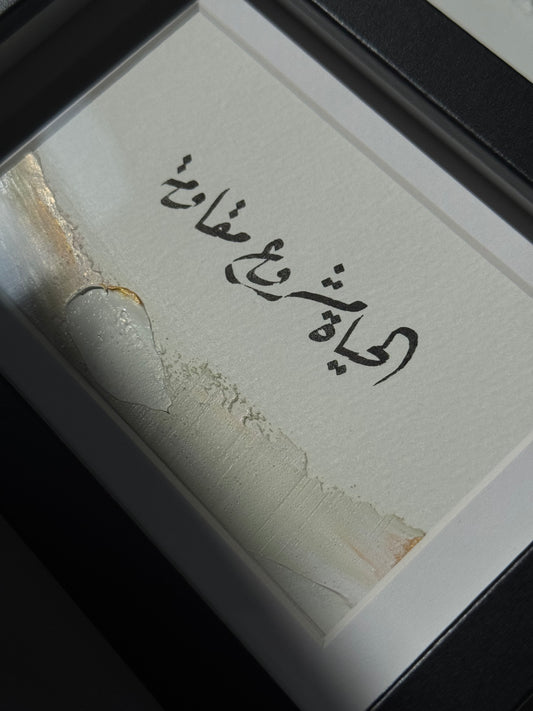 الحياة مشروع مقاومة